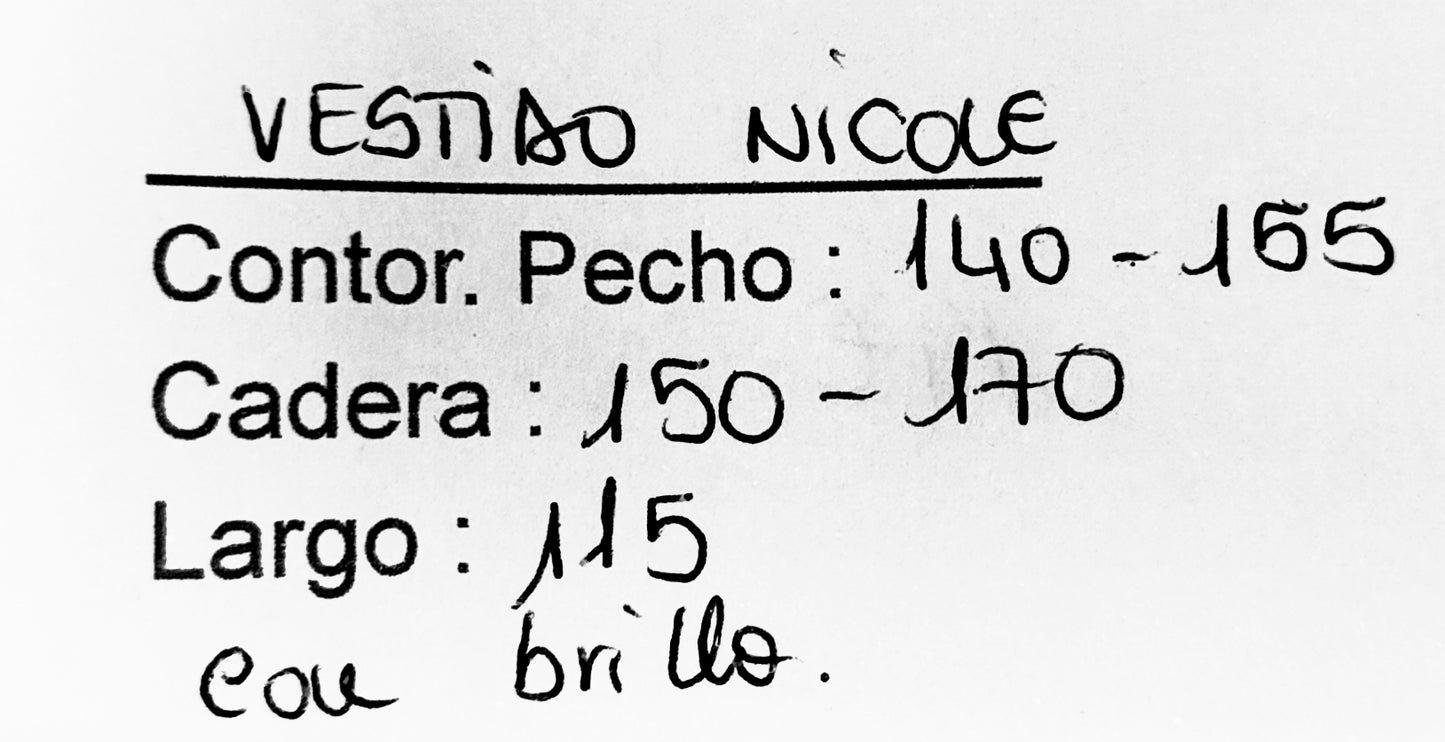 VESTIDO NICOLE
Contor. Pecho : 140 - 155
Cadera : 150 - 170
Largo : 115
con brillo.